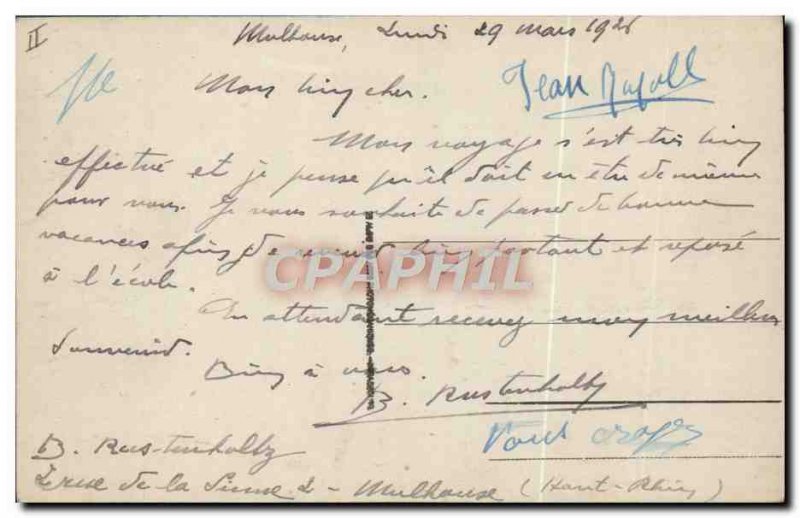 II
Mulhouse, Lundi 29 mars 1926
Mon bien cher.
Jean
Mon voyage s'est très bien
effectué et je pense qu'il doit en être de même
pour vous. Je vous souhaite de passer de bonnes
vacances afin de revenir bien portant et reposé
à l'école.
CPARAMA
En attendant recevez mon meilleur
souvenir.
Bien à vous.
B. Rustenholtz
B. Rustenholtz
2 rue de la Sinne 2 - Mulhouse (Haut-Rhin)